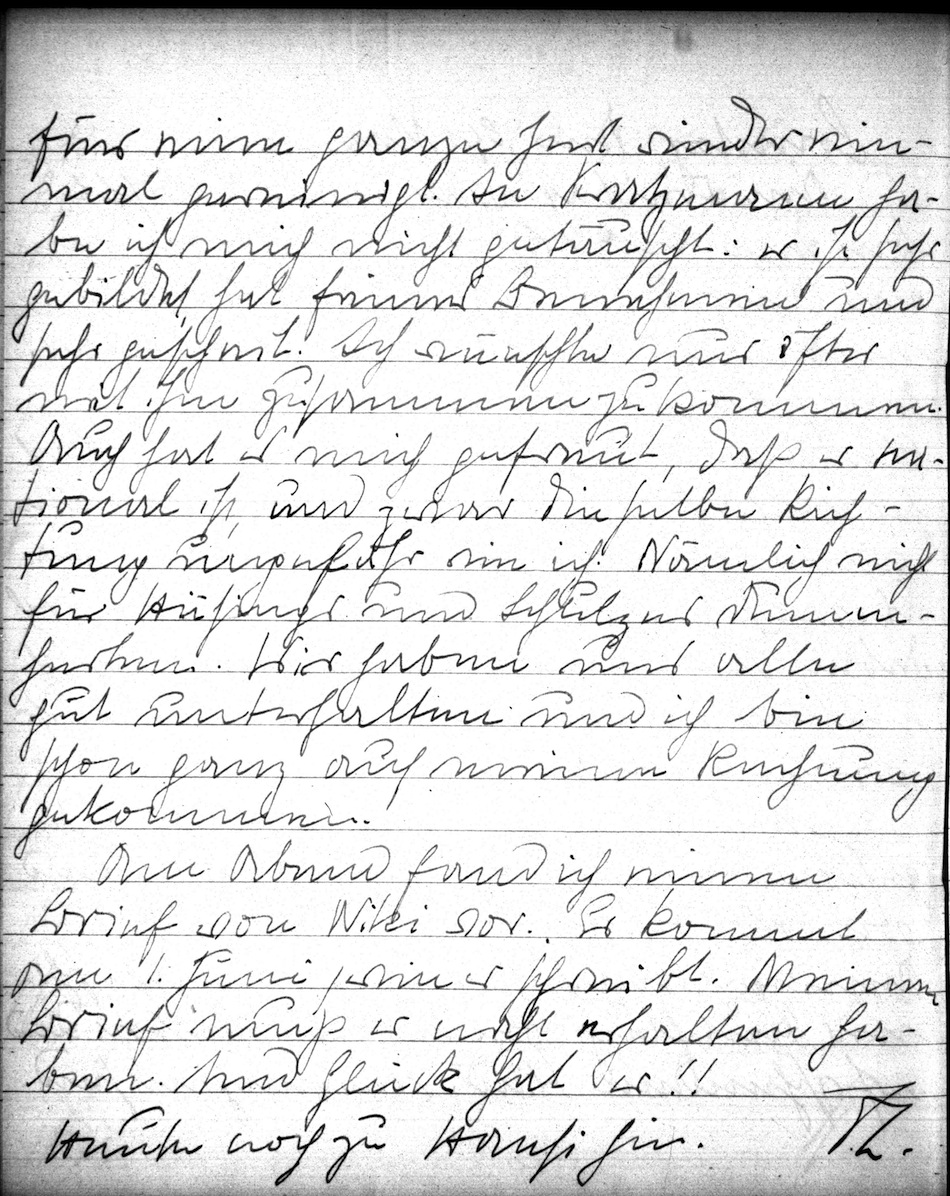 für meine ganze Zeit wieder ein-
mal gereinigt. In Kratzmann ha-
be ich mich nicht getäuscht: er ist sehr
gebildet, hat feines Benehmen und
sehr gescheit. Ich wünschte nur öfter
mit ihm zusammenzukommen.
Auch hat es mich gefreut, daß er na-
tional ist und zwar dieselbe Rich-
tung ungefähr wie ich. Nämlich nicht
für Hüsings und Schulzes Dumm-
heiten. Wir haben uns alle
gut unterhalten und ich bin
schon ganz auf meine Rechnung
gekommen.
Am Abend fand ich einen
Brief von Niki vor. Er kommt
am 1. Juni wie er schreibt. Meinen
Brief muß er nicht erhalten ha-
ben. Und Glück hat er!!
Heute noch zu Hansi hin.